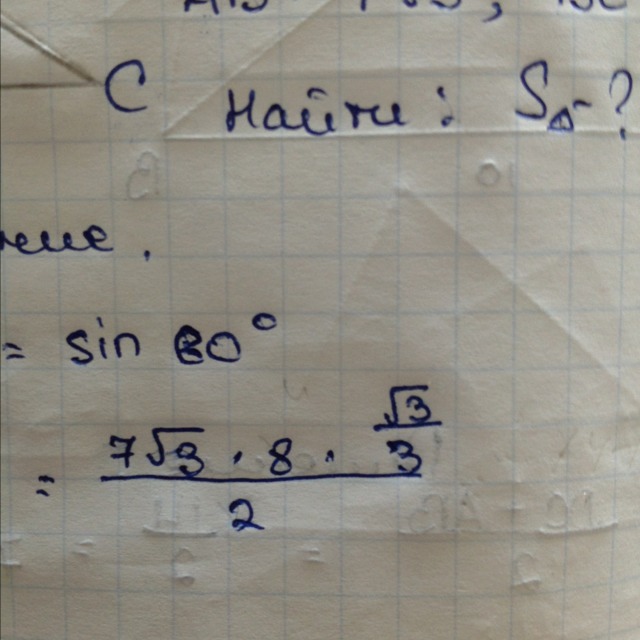 C
Найти: S△-?
= sin 60°
= (7√3 · 8 · √3/3)/2